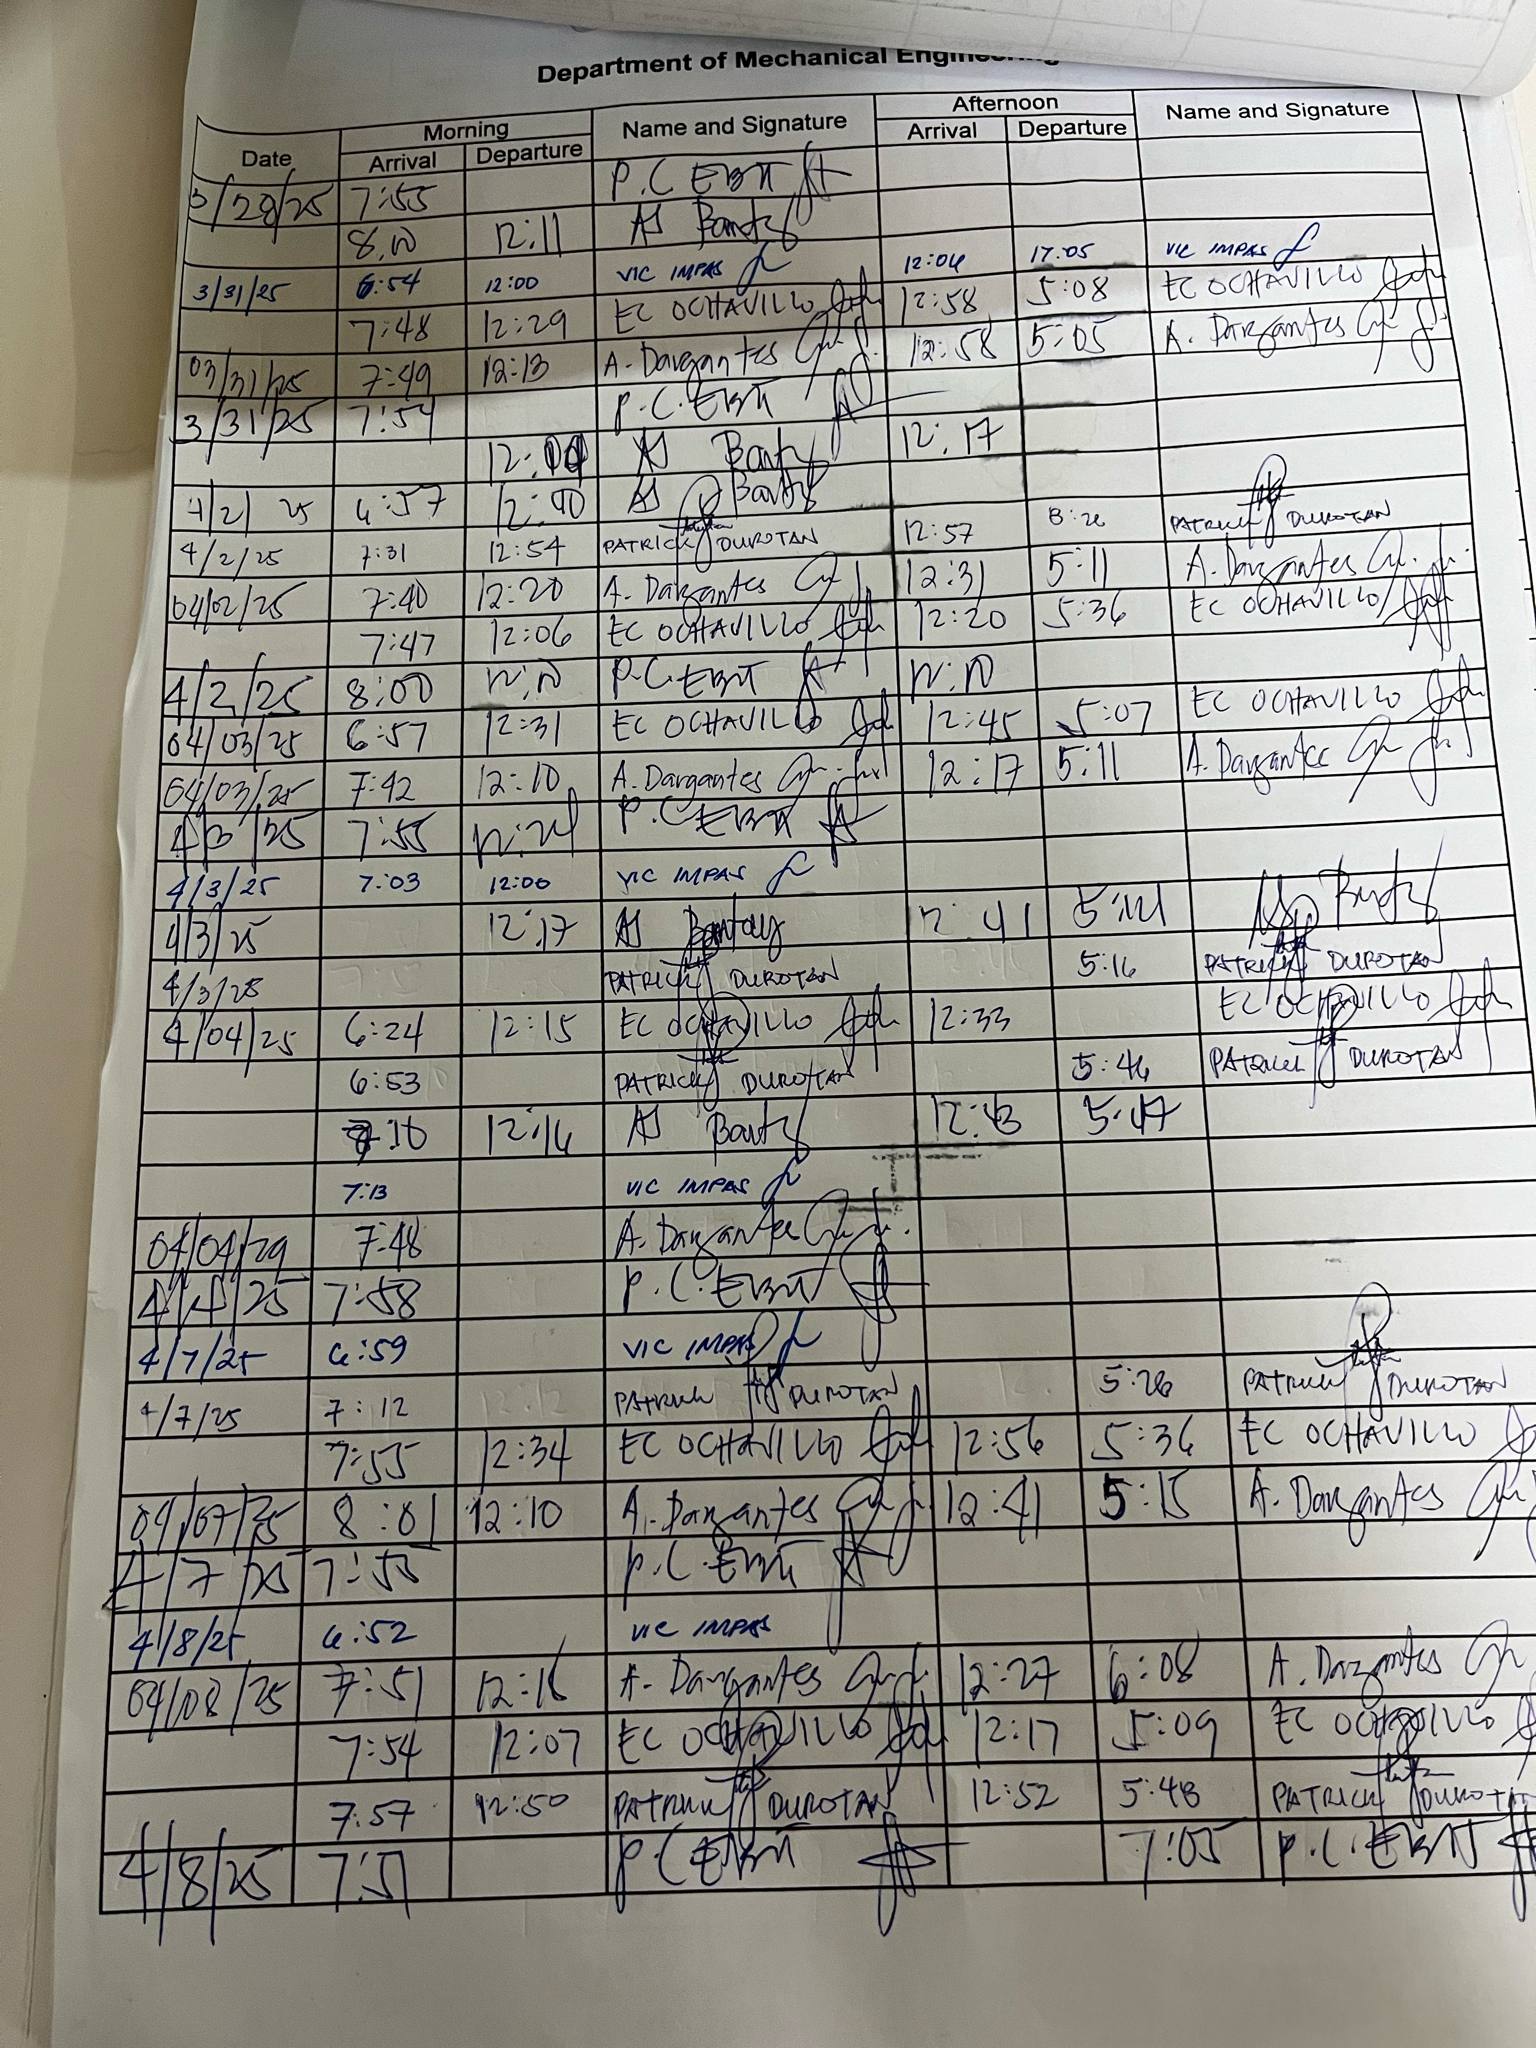 Department of Mechanical Engineering
Date Morning Name and Signature Afternoon Name and Signature
Arrival Departure Arrival Departure
3/28/25 7:55 P.C EBIT
8:00 12:11 AS Bantay
3/31/25 6:54 12:00 VIC IMPAS 12:04 17:05 VIC IMPAS
7:48 12:29 EC OCHAVILLO 12:58 5:08 EC OCHAVILLO
03/31/25 7:49 12:13 A. Dargantes 12:58 5:05 A. Dargantes
3/31/25 7:54 P.C. EBIT
12:00 AS Bantay 12:17
4/2/25 6:57 12:00 AS Bantay
4/2/25 7:31 12:54 PATRICK DUROTAN 12:57 PATRICK DUROTAN
04/02/25 7:40 12:20 A. Dargantes 12:31 5:11 A. Dargantes
7:47 12:06 EC OCHAVILLO 12:20 5:36 EC OCHAVILLO
4/2/25 8:00 P.C. EBIT
04/03/25 6:57 12:31 EC OCHAVILLO 12:45 5:07 EC OCHAVILLO
04/03/25 7:42 12:10 A. Dargantes 12:17 5:11 A. Dargantes
4/3/25 7:55 P.C EBIT
4/3/25 7:03 12:00 VIC IMPAS
4/3/25 12:17 AS Bantay 12:41 Bantay
4/3/25 PATRICK DUROTAN 5:16 PATRICK DUROTAN
4/04/25 6:24 12:15 EC OCHAVILLO 12:33 EC OCHAVILLO
6:53 PATRICK DUROTAN 5:46 PATRICK DUROTAN
7:10 12:16 AS Bantay 12:43 5:47
7:13 VIC IMPAS
04/04/29 7:48 A. Dargantes
4/4/25 7:58 P.C. EBIT
4/7/25 6:59 VIC IMPAS
4/7/25 7:12 PATRICK DUROTAN 5:26 PATRICK DUROTAN
7:55 12:34 EC OCHAVILLO 12:56 5:36 EC OCHAVILLO
04/07/25 8:01 12:10 A. Dargantes 12:41 5:15 A. Dargantes
4/7/25 7:55 P.C. EBIT
4/8/25 6:52 VIC IMPAS
04/08/25 7:51 12:16 A. Dargantes 12:27 6:08 A. Dargantes
7:54 12:07 EC OCHAVILLO 12:17 5:09 EC OCHAVILLO
7:57 12:50 PATRICK DUROTAN 12:52 5:48 PATRICK DUROTAN
4/8/25 7:51 P.C EBIT 7:05 P.C. EBIT